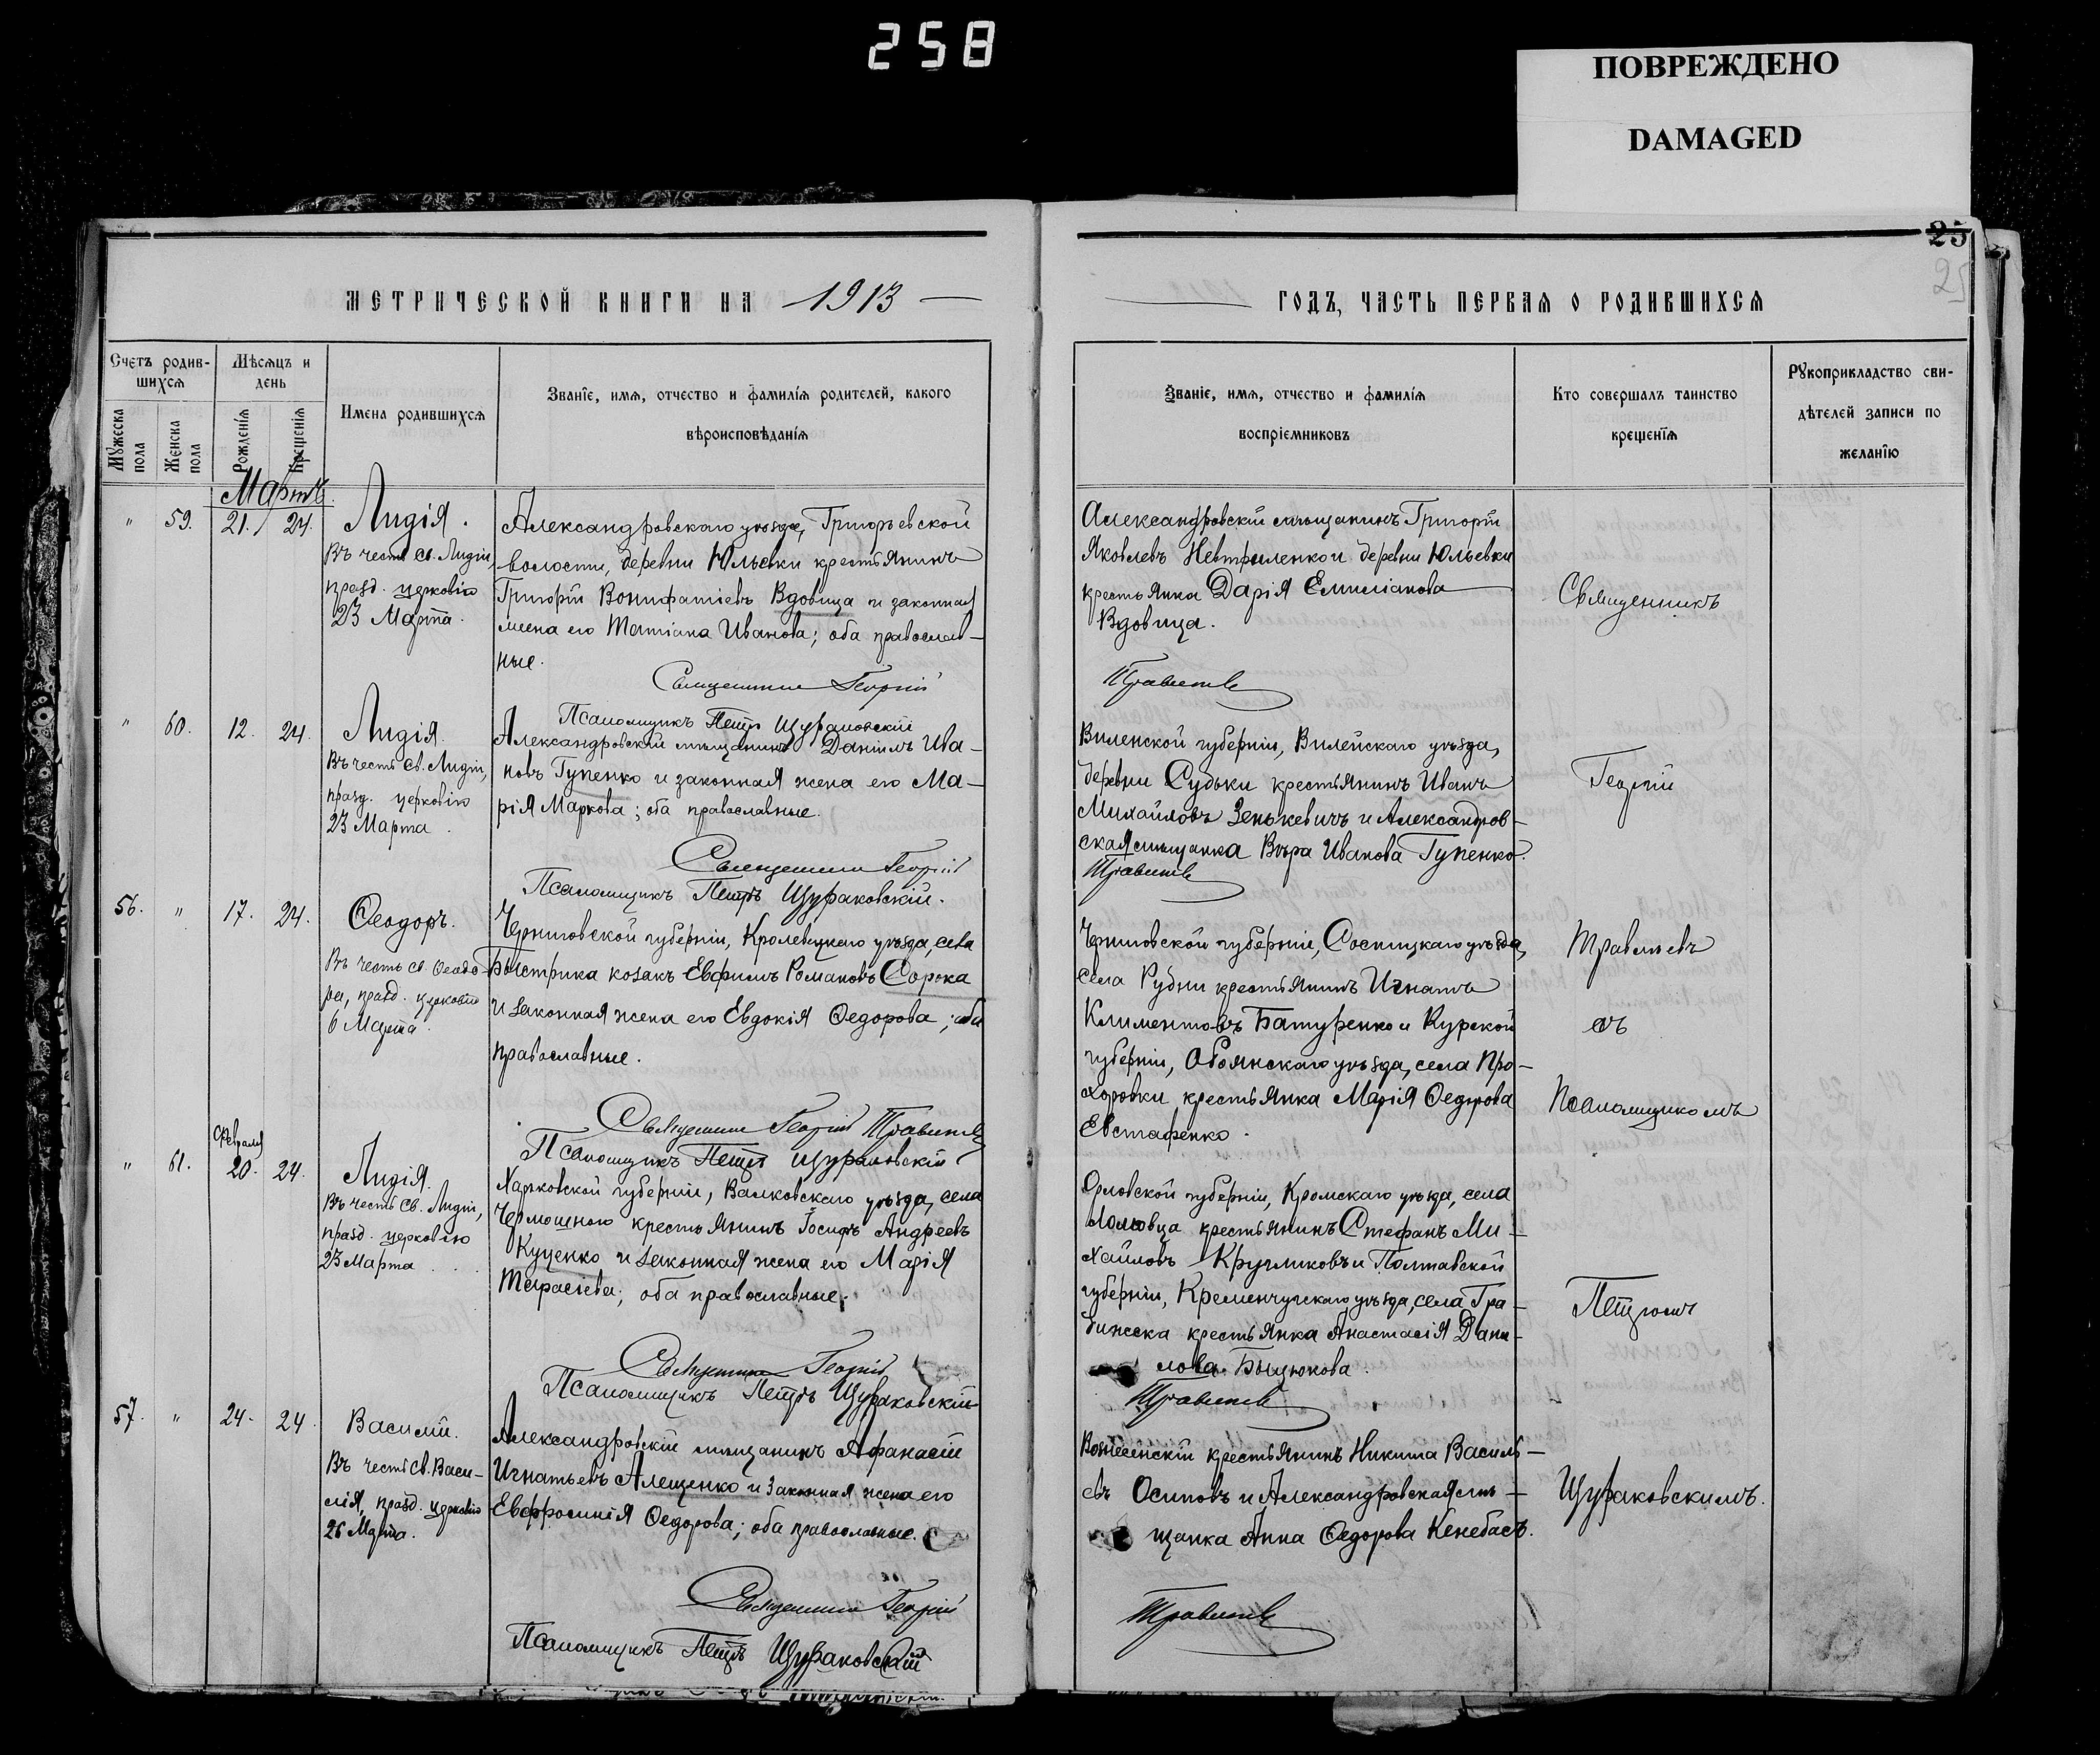 258
ПОВРЕЖДЕНО
DAMAGED
25
25
МЕТРИЧЕСКОЙ КНИГИ НА 1913
ГОДЪ, ЧАСТЬ ПЕРВАЯ О РОДИВШИХСЯ
Счетъ родив-
шихся
Мѣсяцъ и
день
Мужеска
пола
Женска
пола
Рожденія
Крещенія
Имена родившихся
Званіе, имя, отчество и фамилія родителей, какого
вѣроисповѣданія
Званіе, имя, отчество и фамилія
воспріемниковъ
Кто совершалъ таинство
крещенія
Рукоприкладство сви-
дѣтелей записи по
желанію
Мартъ
" 59. 21. 24.
Лидія.
Въ честь св. Лидіи,
празд. церковію
23 Марта.
Александровскаго уѣзда, Григорьевской
волости, деревни Юльевки крестьянинъ
Григорій Вонифатіевъ Вдовица и законная
жена его Татіана Иванова; оба православ-
ные.
Священникъ Георгій
Псаломщикъ Петръ Щураковскій
Александровскій мѣщанинъ Григорій
Яковлевъ Невтриленко и деревни Юльевки
крестьянка Дарія Емиліанова
Вдовица.
Травлевъ
Священникъ
" 60. 12. 24.
Лидія.
Въ честь св. Лидіи,
празд. церковію
23 Марта.
Александровскій мѣщанинъ Даніилъ Ива-
новъ Гупенко и законная жена его Ма-
рія Маркова; оба православные.
Священникъ Георгій
Псаломщикъ Петръ Щураковскій.
Виленской губерніи, Вилейскаго уѣзда,
деревни Судьки крестьянинъ Иванъ
Михайловъ Зенькевичъ и Александров-
ская мѣщанка Вѣра Иванова Гупенко.
Георгій
56. " 17. 24.
Ѳеодоръ.
Въ честь св. Ѳеодо-
ра, празд. церковію
6 Марта.
Черниговской губерніи, Кролевецкаго уѣзда, села
Быстрика козакъ Евфимъ Романовъ Сорока
и законная жена его Евдокія Ѳедорова; оба
православные.
Священникъ Георгій
Псаломщикъ Петръ Щураковскій
Черниговской губерніи, Сосницкаго уѣзда,
села Рудни крестьянинъ Игнатъ
Климентовъ Батуренко и Курской
губерніи, Обоянскаго уѣзда, села Про-
хоровки крестьянка Марія Ѳедорова
Евстафенко.
съ
Псаломщикомъ
Февраля
" 61. 20. 24.
Лидія.
Въ честь св. Лидіи,
празд. церковію
23 Марта.
Харьковской губерніи, Валковскаго уѣзда, села
крестьянинъ Іосифъ Андреевъ
Куценко и законная жена его Марія
Тарасіева; оба православные.
Священникъ Георгій
Псаломщикъ Петръ Щураковскій
Орловской губерніи, Кромскаго уѣзда, села
крестьянинъ Стефанъ Ми-
хайловъ Кругликовъ и Полтавской
губерніи, Кременчугскаго уѣзда, села Гра-
дижска крестьянка Анастасія Дани-
лова
Петромъ
57. " 24. 24.
Василій.
Въ честь св. Васи-
лія, празд. церковію
26 Марта.
Александровскій мѣщанинъ Афанасій
Игнатьевъ Алещенко и законная жена его
Евфросинія Ѳедорова; оба православные.
Священникъ Георгій
Псаломщикъ Петръ Щураковскій
Вознесенскій крестьянинъ Никита Василь-
евъ Осиповъ и Александровская мѣ-
щанка Анна Ѳедорова Кенебасъ.
Щураковскимъ.